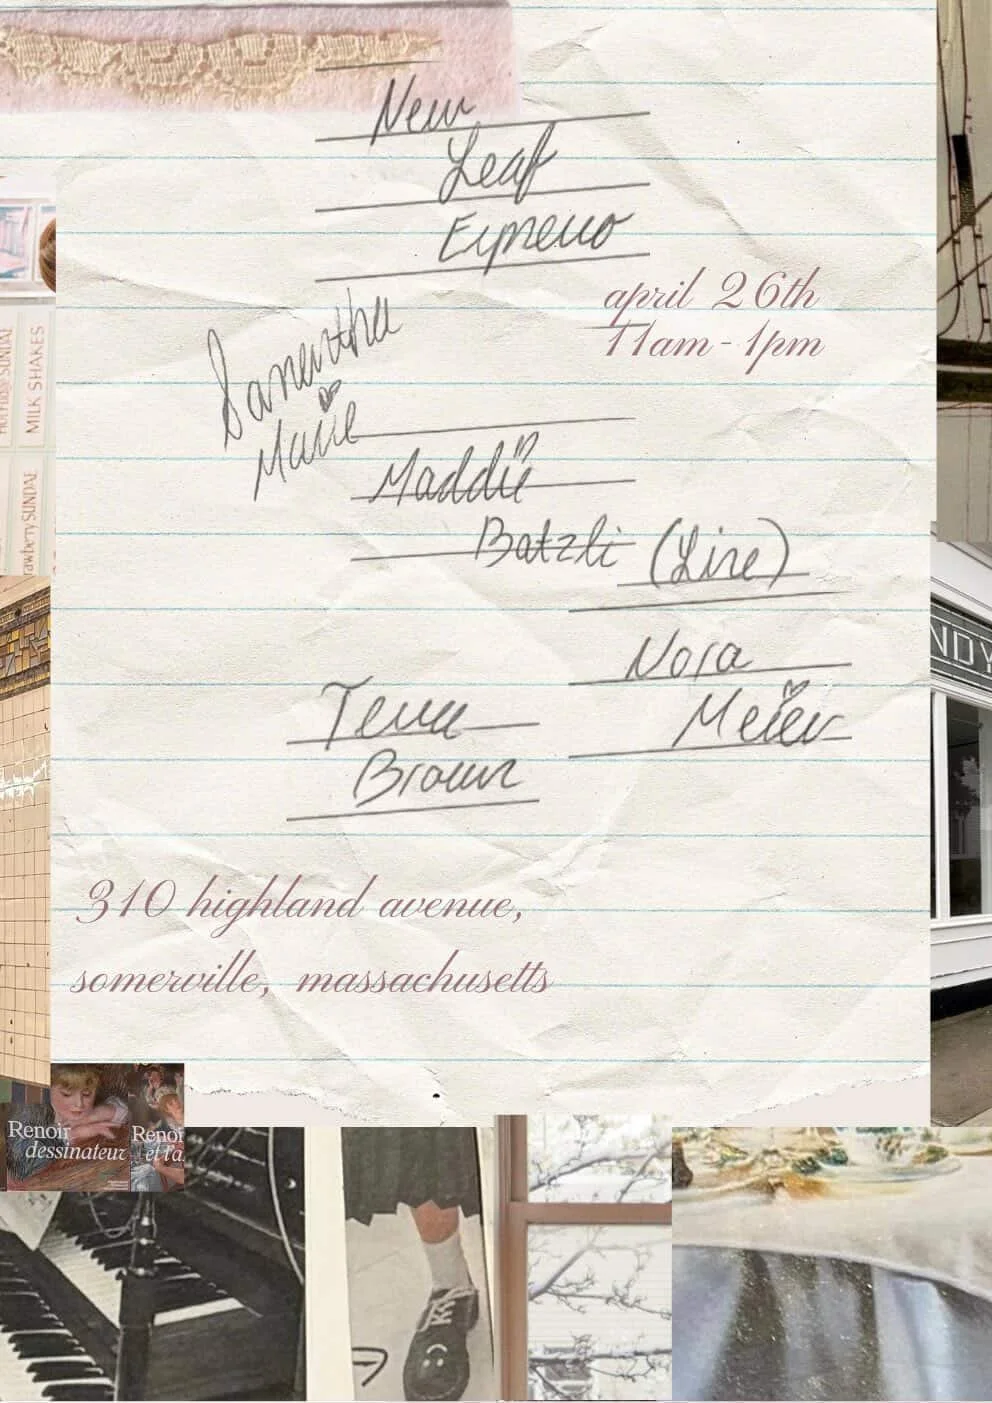 New
Leaf
Espresso
april 26th
11am-1pm
Samantha
Marie
Maddie
Batzli (Line)
Nora
Meier
Tena
Brown
310 highland avenue,
somerville, massachusetts
MILK SHAKES
SUNDAE
NDY
Renoir
dessinateur
Renoi
et la